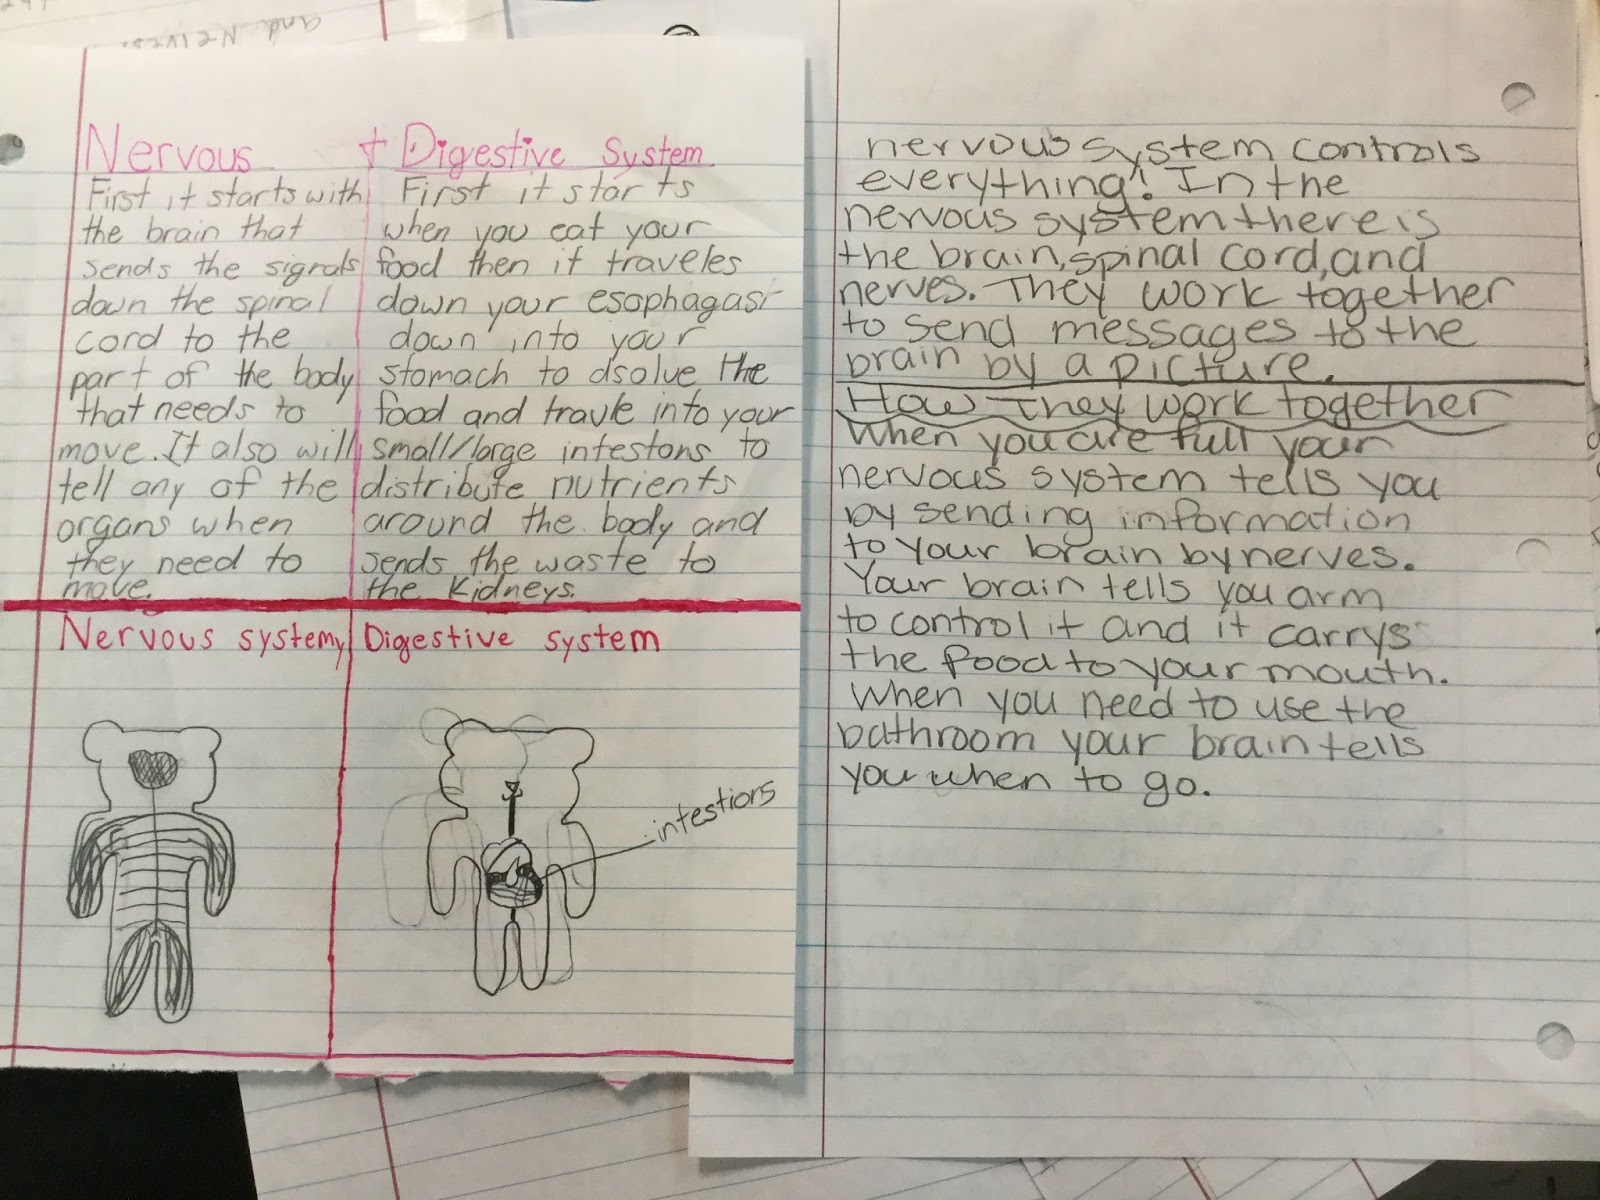 and Nerves.
Nervous + Digestive System
First it starts with
the brain that
sends the signals
down the spinal
cord to the
part of the body
that needs to
move. It also will
tell any of the
organs when
they need to
move.
First it starts
when you eat your
food then it traveles
down your esophagas
down into your
stomach to dsolve the
food and travle into your
small/large intestons to
distribute nutrients
around the body and
sends the waste to
the kidneys.
Nervous system
Digestive system
intestions
nervous system controls
everything! In the
nervous system there is
the brain, spinal cord, and
nerves. They work together
to send messages to the
brain by a picture.
How They work together
When you are full your
nervous system tells you
by sending information
to your brain by nerves.
Your brain tells you arm
to control it and it carrys
the food to your mouth.
When you need to use the
bathroom your brain tells
you when to go.